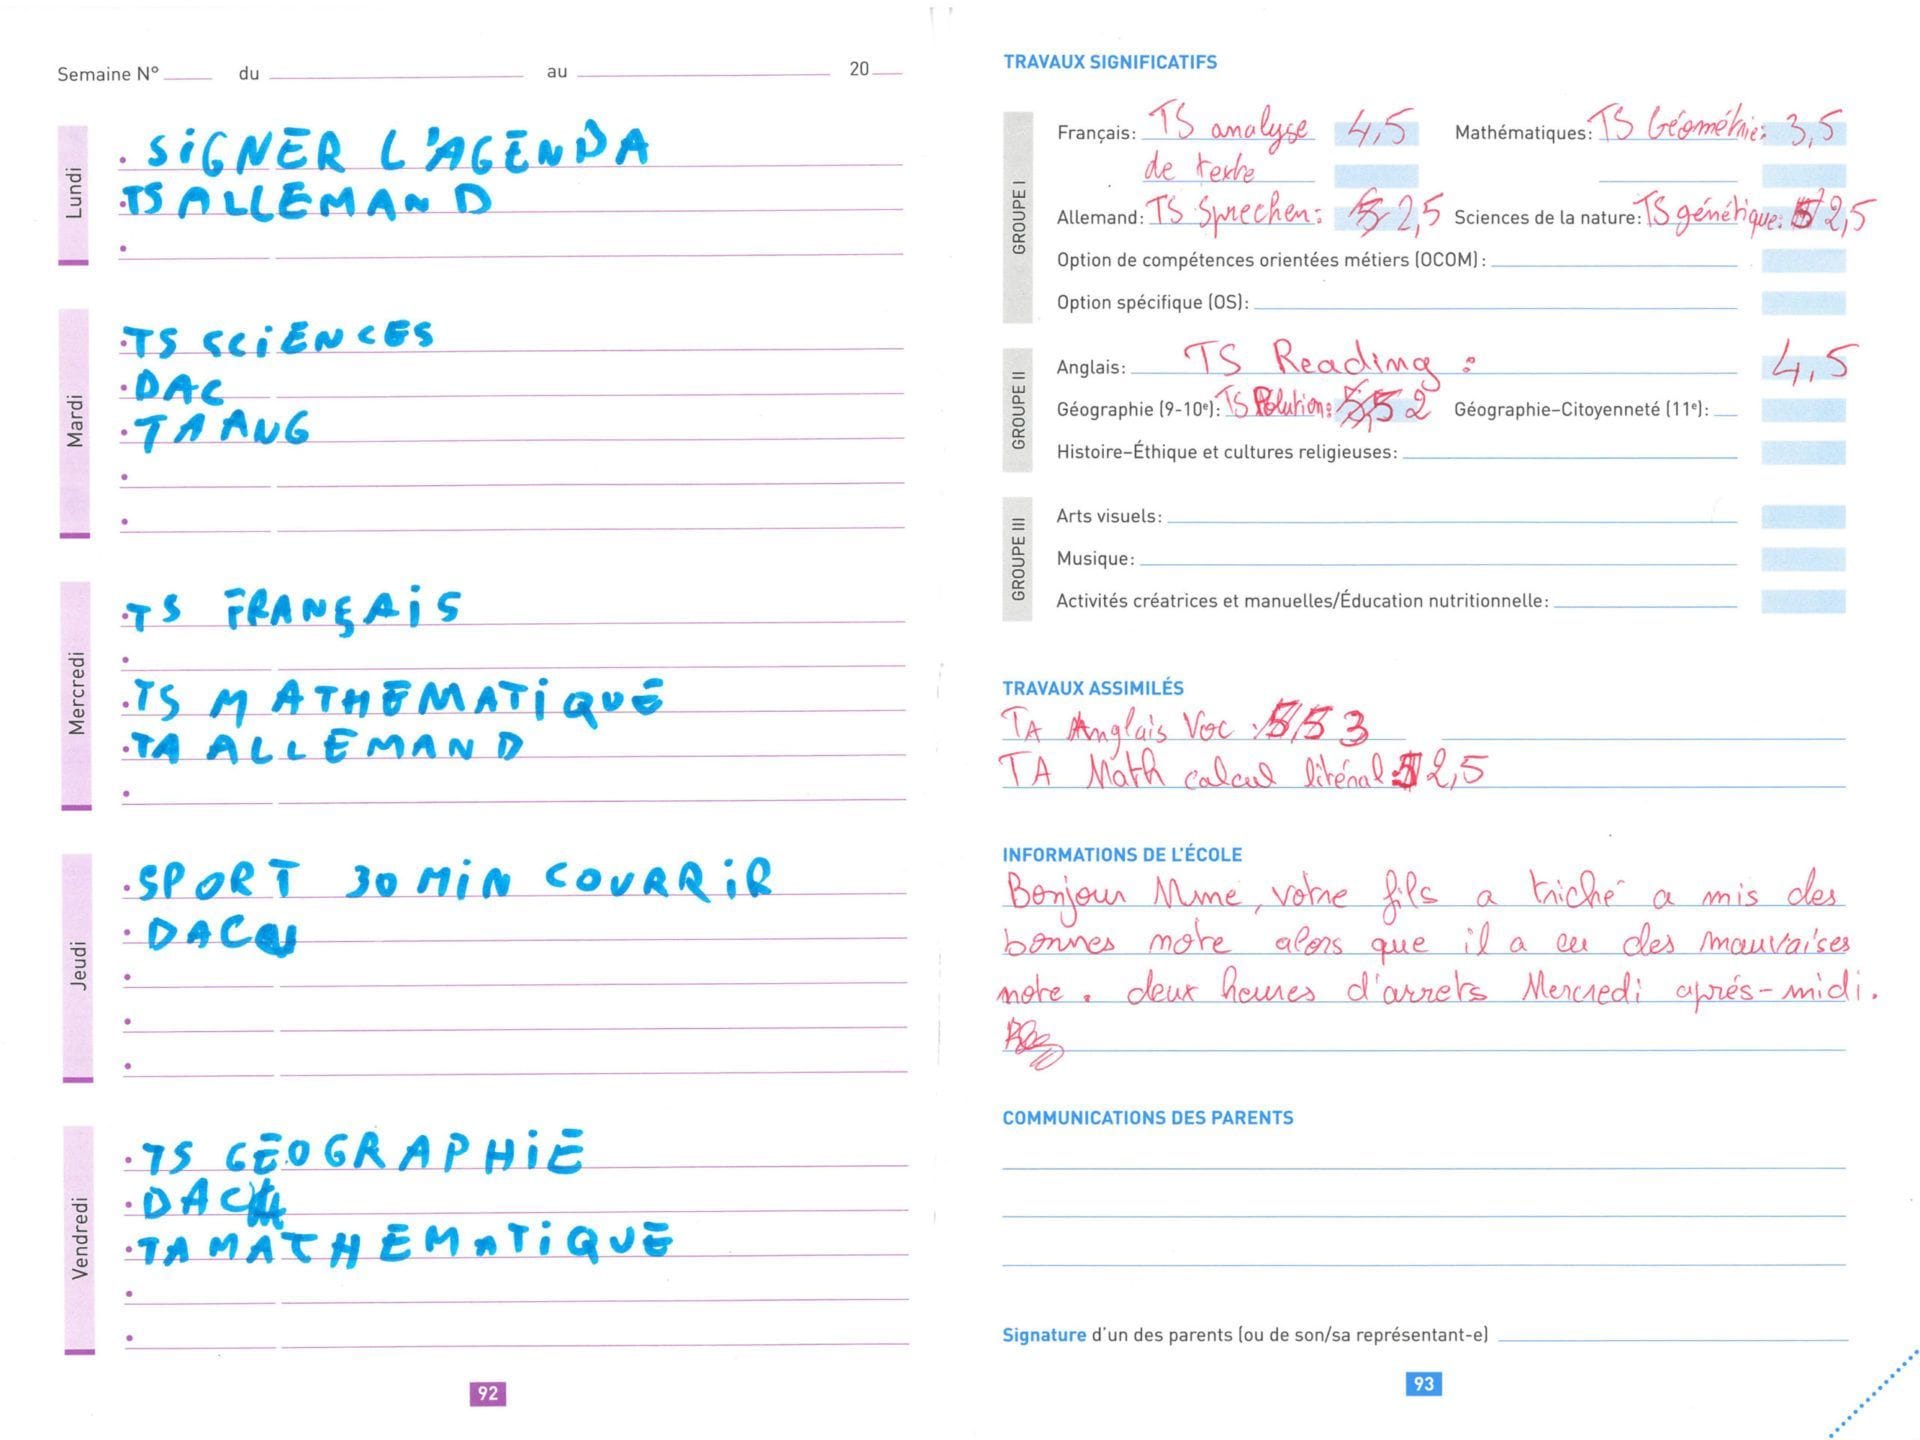 Semaine N° du au 20
Lundi
SIGNER L'AGENDA
TS ALLEMAND
Mardi
TS SCIENCES
DAC
TA ANG
Mercredi
TS FRANÇAIS
TS MATHÉMATIQUE
TA ALLEMAND
Jeudi
SPORT 30 MIN COURRIR
DAC
Vendredi
TS GÉOGRAPHIE
DAC
TA MATHÉMATIQUE
92
TRAVAUX SIGNIFICATIFS
GROUPE I
Français: TS analyse 4,5 Mathématiques: TS Géométrie: 3,5
de texte
Allemand: TS Sprechen: 2,5 Sciences de la nature: TS génétique: 2,5
Option de compétences orientées métiers (OCOM):
Option spécifique (OS):
GROUPE II
Anglais: TS Reading : 4,5
Géographie (9-10e): TS Polution: 5,5 2 Géographie–Citoyenneté (11e):
Histoire–Éthique et cultures religieuses:
GROUPE III
Arts visuels:
Musique:
Activités créatrices et manuelles/Éducation nutritionnelle:
TRAVAUX ASSIMILÉS
TA Anglais Voc : 3
TA Math calcul litéral: 2,5
INFORMATIONS DE L'ÉCOLE
Bonjour Mme, votre fils a triché a mis des
bonnes note alors que il a eu des mauvaises
note. deux heures d'arrets Mercredi aprés-midi.
COMMUNICATIONS DES PARENTS
Signature d'un des parents (ou de son/sa représentant-e)
93